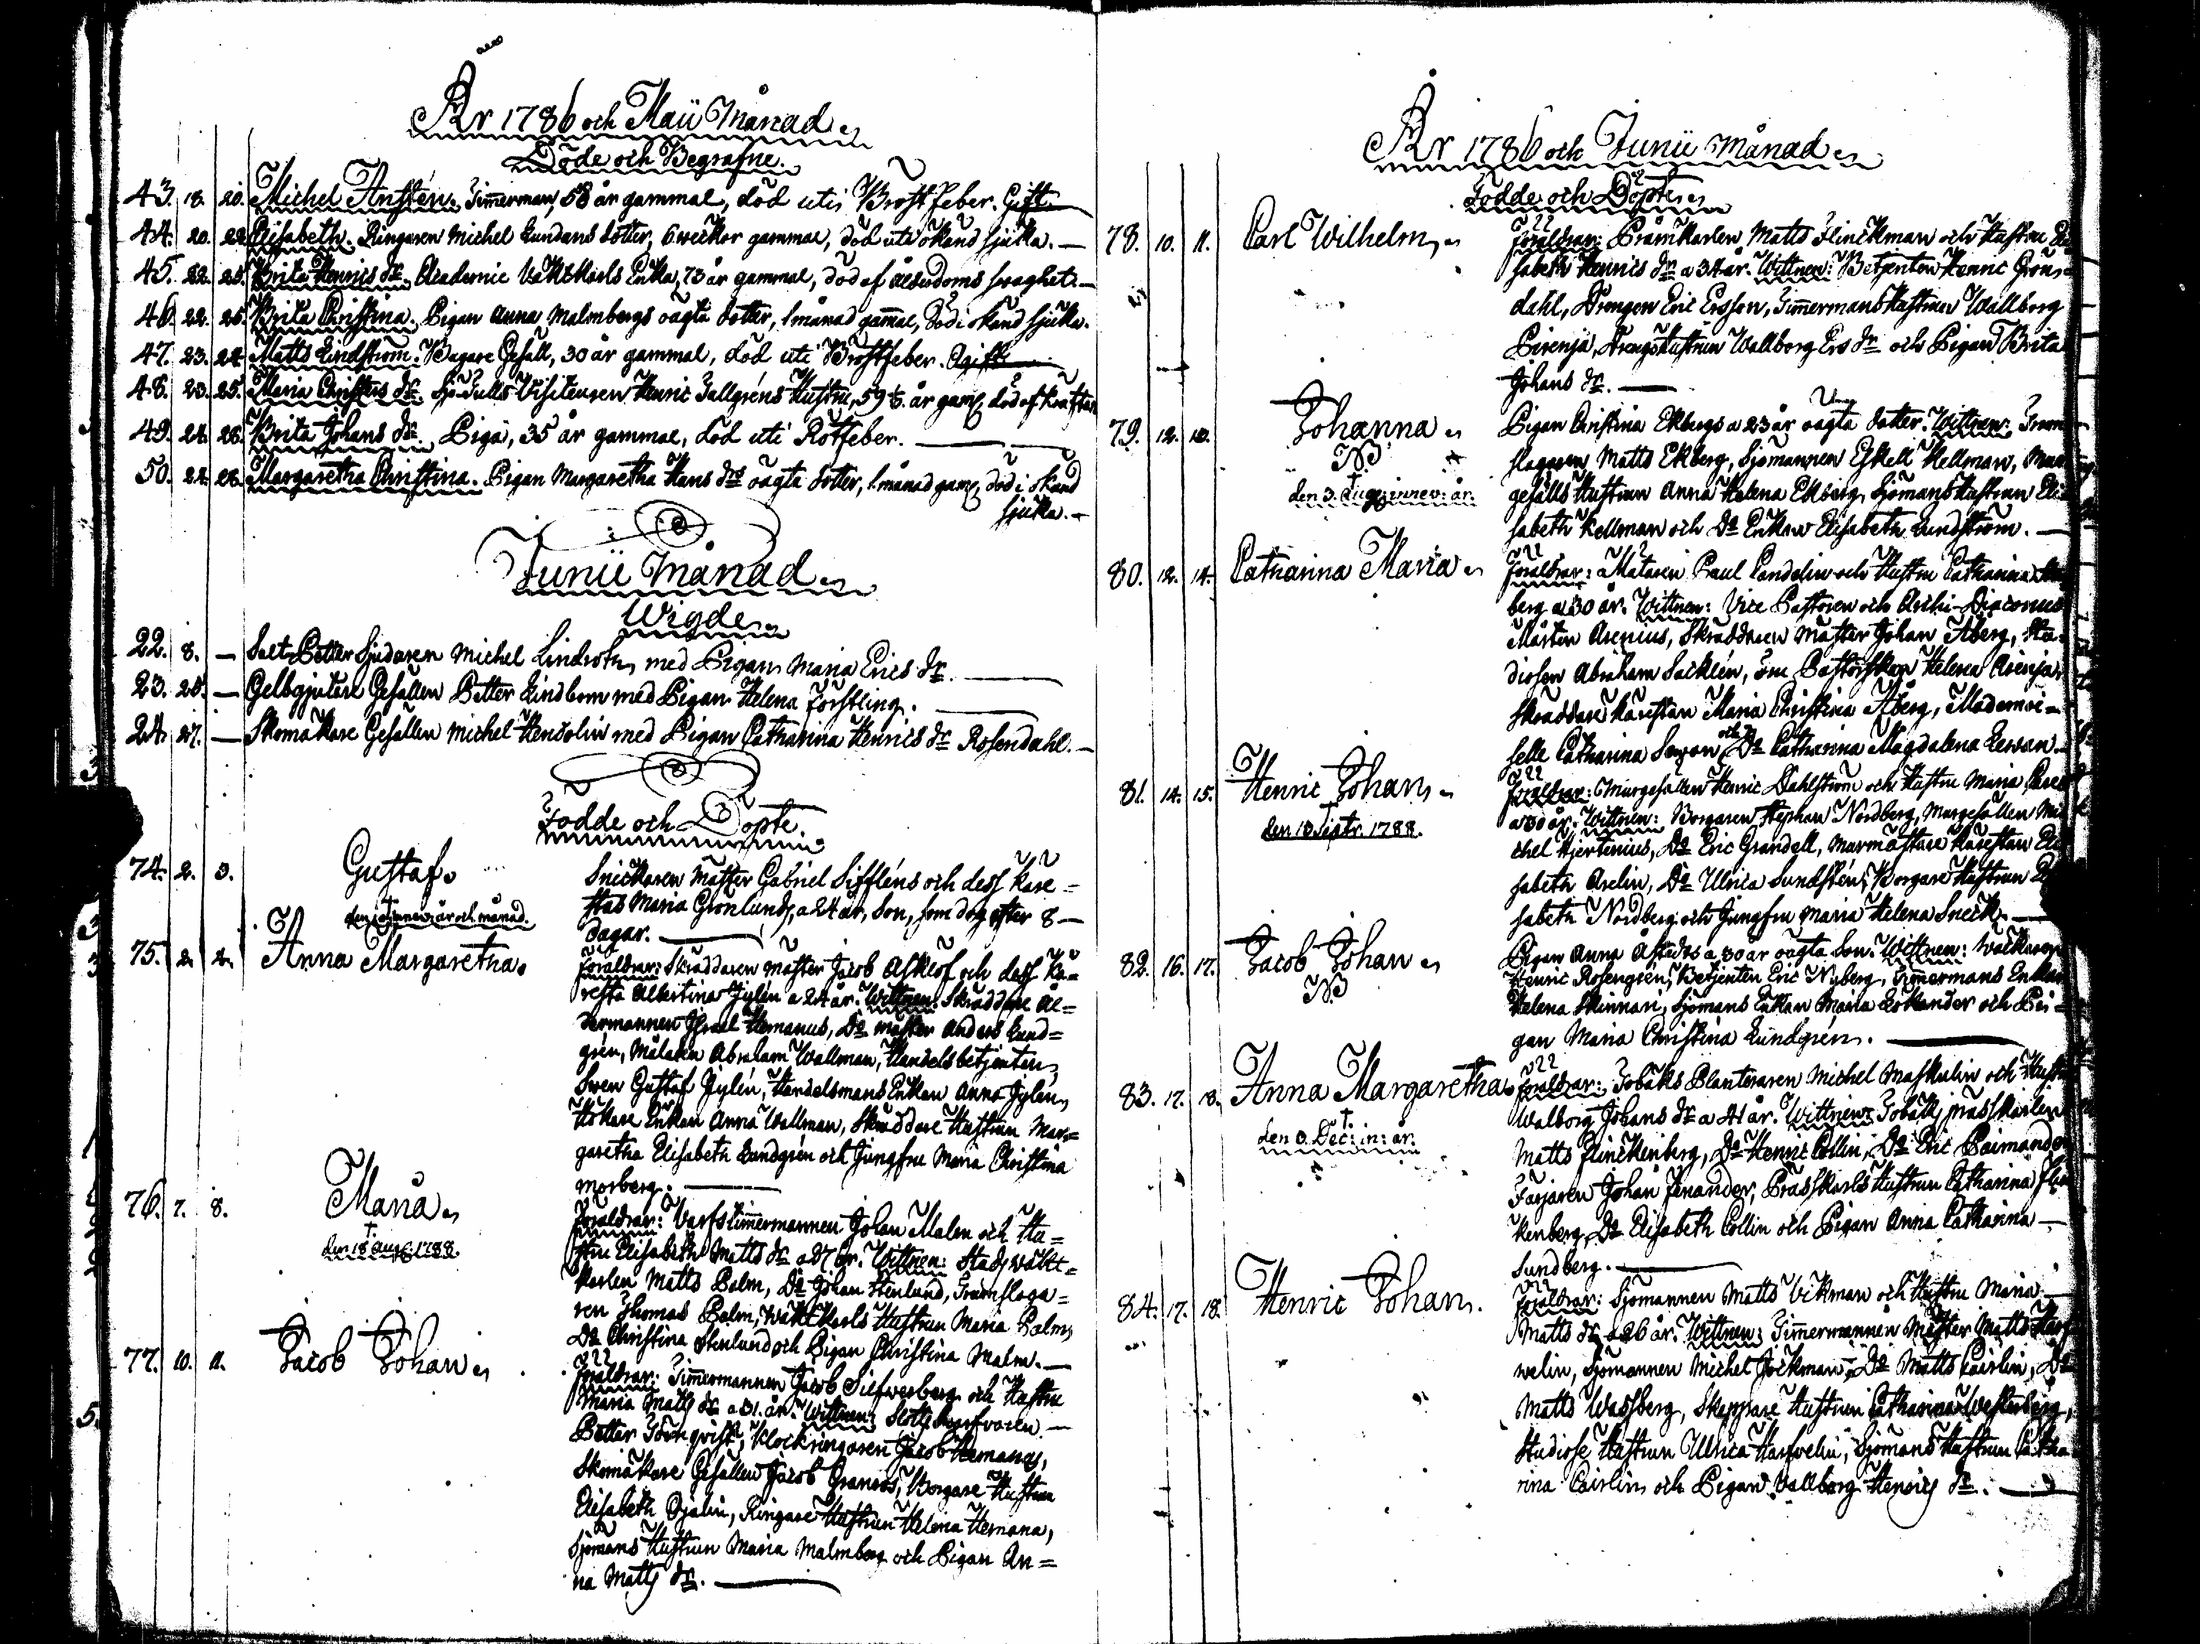 År 1786 och Maii Månad
Döde och Begrafne.
43. 18. 20. Michel Anstén. Timmerman, 58 år gammal, död uti Bröstfeber. Gift.
44. 20. 22. Elisabeth. Ringaren Michel Lundans dotter, 6 weckor gammal, död uti okänd sjuka. —
45. 22. 25. Brita Henrics dr. Academie Vaktkarls Enka, 73 år gammal, död af ålderdoms svaghet. —
46. 22. 25. Brita Christina. Pigan Anna Malmbergs oägta dotter, 1 månad gammal, död i okänd sjuka.
47. 23. 24. Matts Lindström. Bagare Gesäll, 30 år gammal, död uti Bröstfeber. Ogift
48. 23. 25. Maria Christers dr. Sjö-Tulls Visiteuren Henric Tallgréns Hustru, 59 år gam. död af kräftan
49. 24. 26. Brita Johans dr. Piga, 35 år gammal, död uti Rötfeber.
50. 24. 26. Margaretha Christina. Pigan Margaretha Hans drs oägta dotter, 1 månad gam. död i okänd
sjuka. —
Junii Månad
Wigde
22. 8. — Salt-Petter Sjudaren Michel Lindroth, med Pigan Maria Erics dr.
23. 25. — Gelbgjutare Gesällen Petter Lindbom med Pigan Helena Förstling.
24. 27. — Skomakare Gesällen Michel Hendolin med Pigan Catharina Henrics dr Rosendahl. —
Födde och Döpte.
74. 2. 3. Gustaf
Snickaren Mäster Gabriel Siffléns och dess Käre-
stas Maria Grönlund, a 24 år, Son, som dog efter 8
dagar.
75. 2. 2. Anna Margaretha.
Föräldrar: Skräddaren Mäster Jacob Asklöf och dess Kä-
resta Albertina Gylén a 24 år. Wittnen: Skräddare Ål-
dermannen Israel Hemanus, Do Mäster Anders Lund-
grén, Målaren Abraham Wallman, Handelsbetjenten
Swen Gustaf Gylén, Handelsmans Enkan Anna Gylén,
Hökare Enkan Anna Wallman, Skräddare Hustrun Mar-
garetha Elisabeth Lundgrén och Jungfru Maria Christina
Morberg.
76. 7. 8. Maria
den 18 Aug. 1788.
Föräldrar: Varfstimmermannen Johan Malm och Hu-
stru Elisabeth Matts dr a 27 år. Wittnen: Stadswakt-
karlen Matts Palm, Do Johan Stenlund, Trumslaga-
ren Thomas Palm, Waktkarls Hustrun Maria Palm,
Do Christina Stenlund och Pigan Christina Malm. —
77. 10. 11. Jacob Johan
Föräldrar: Timmermannen Jacob Silfwerberg och Hustru
Maria Matts dr a 31 år. Wittnen:
Petter Törnqvist, Klockringaren Jacob Hemanus,
Skomakare Gesällen Jacob Granroos, Borgare Hustrun
Elisabeth, Ringare Hustrun Helena Hemana,
Sjömans Hustrun Maria Malmberg och Pigan An-
na Matts dr.
År 1786 och Junii Månad
Födde och Döpte
78. 10. 11. Carl Wilhelm
Föräldrar: Pråmkarlen Matts Flinckman och Hustru Eli
sabeth Henrics dr a 34 år. Wittnen: Betjenten Henric Grön-
dahl, Drengen Eric Ersson, Timmermans Hustrun Wallborg
Pirenja, Drengs Hustrun Wallborg Ers dr och Pigan Brita
Johans dr. —
79. 12. 12. Johanna
den 3. Aug. innev: år.
Pigan Christina Ekbergs a 23 år oägta dotter. Wittnen: Trum
slagaren Matts Ekberg, Sjömannen Eskell Kellman, Mur
gesälls Hustrun Anna Helena Ekberg, Sjömans Hustrun Eli
sabeth Kellman och Do Enkan Elisabeth Lundström. —
80. 12. 14. Catharina Maria
Föräldrar: Mätaren Paul Pandelin och Hustru Catharina
berg a 30 år. Wittnen: Vice Pastoren och Archi-Diaconus
Mårten Arenius, Skräddaren Mäster Johan Åberg, Stu-
diosen Abraham Sacklén, Fru Pastorskan Helena Arenja,
Skräddare Kärestan Maria Christina Åberg, Mademoi-
selle Catharina Lewan och Do Catharina Magdalena Lewan.
81. 14. 15. Henric Johan
den 13 Septr. 1788.
Föräldrar: Murgesällen Henric Dahlström och Hustru Maria
a 30 år. Wittnen: Borgaren Stephan Nordberg, Murgesällen Mi
chel Hjertenius, Do Eric Grandell, Murmästare Kärestan Eli
sabeth Arelin, Do Ullrica Sundstén, Borgare Hustrun Eli
sabeth Nordberg och Jungfru Maria Helena Sneck. —
82. 16. 17. Jacob Johan
Pigan Anna Åstedts a 30 år oägta Son. Wittnen:
Henric Rosengrén, Betjenten Eric Nyberg, Timmermans Enkan
Helena Skinnari, Sjömans Enkan Maria Eolander och Pi-
gan Maria Christina Lundgrén.
83. 17. 18. Anna Margaretha
den 8. Dec: in: år.
Föräldrar: Tobaks Planteraren Michel Maskulin och Hustru
Walborg Johans dr a 41 år. Wittnen: Tobaks prässkarlen
Matts Flinckenberg, Do Henric Collin, Do Eric Paimander
Färjaren Johan Fenander, Prässkarls Hustrun Catharina Flin
kenberg, Do Elisabeth Collin och Pigan Anna Catharina
Sundberg.
84. 17. 18. Henric Johan.
Föräldrar: Sjömannen Matts Wikman och Hustru Maria
Matts dr a 26 år. Wittnen: Timmermannen Mäster Matts Harf
welin, Sjömannen Michel Jockman, Do Matts Cairlin, Do
Matts Wassberg, Skeppare Hustrun Catharina Westerberg,
Studiose Hustrun Ullrica Harfvelin, Sjömans Hustrun Catha
rina Cairlin och Pigan Vallborg Henrics dr.